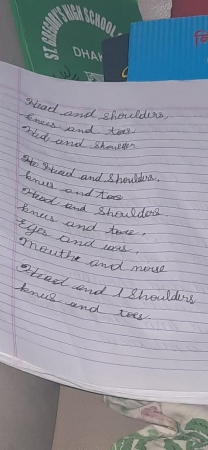 ST. GREGORY'S HIGH SCHOOL
DHAK
Head and shoulders,
knees and toes
Hed, and Shoulder
He Head and Shoulders.
knus and toe
Head and Shoulders
knus and toes.
Eyes and ears,
Mouthe and
Head and Shoulders
knus and toes.